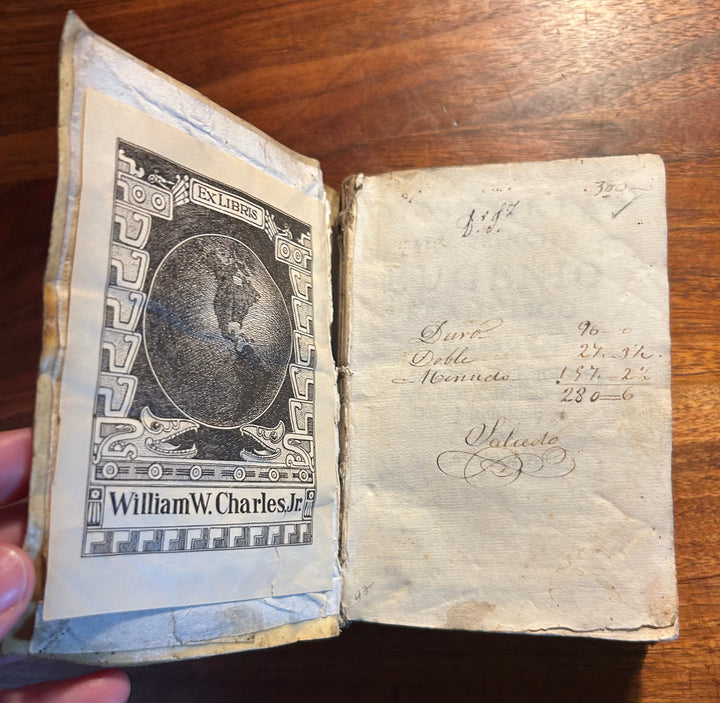 EX LIBRIS
William W. Charles, Jr.
300
Duro 96=0
Doble 27=3½
Menudo 157=2½
280=6
Salcedo